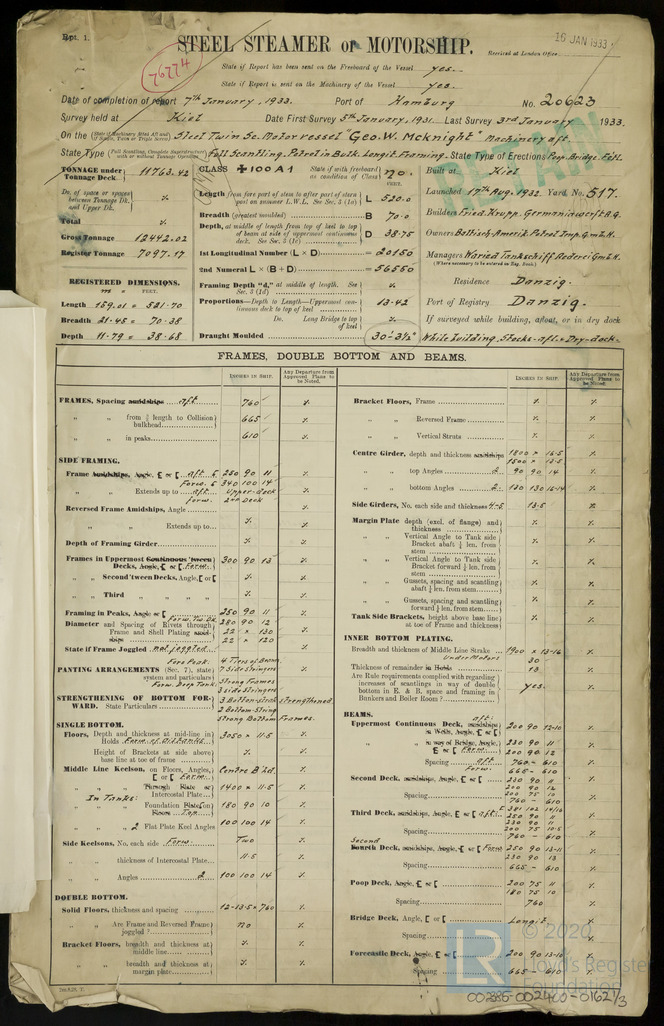 Rpt. 1.
16 JAN 1933
76274
STEEL STEAMER or MOTORSHIP.
Received at London Office
State if Report has been sent on the Freeboard of the Vessel yes.
State if Report is sent on the Machinery of the Vessel yes.
Date of completion of report 7th January, 1933. Port of Hamburg No. 20623
Survey held at Kiel Date First Survey 5th January, 1931. Last Survey 3rd January 1933.
On the (State if Machinery fitted Aft and if Single, Twin or Triple Screw) Steel Twin Sc. Motorvessel "Geo. W. McKnight" Machinery aft.
State Type (Full Scantling, Complete Superstructure with or without Tonnage Opening) Full Scantling, Petrol in Bulk. Longit. Framing. State Type of Erections Poop. Bridge. Fcsl.
RETAIN
TONNAGE under Tonnage Deck. 11763.42
Do. of space or spaces between Tonnage Dk. and Upper Dk.
Total
Gross Tonnage 12442.02
Register Tonnage 7097.17
REGISTERED DIMENSIONS.
m = FEET.
Length 159.01 = 521.70
Breadth 21.45 = 70.38
Depth 11.79 = 38.68
CLASS +100A1 State if with freeboard as condition of Class no.
FEET.
Length from fore part of stem to after part of stern post on summer L.W.L. See Sec. 2 (1a) L 520.0
Breadth (greatest moulded) B 70.0
Depth, at middle of length from top of keel to top of beam at side of uppermost continuous deck. See Sec. 2 (1c) D 38.75
1st Longitudinal Number (L × D) = 20150
2nd Numeral L × (B + D) = 56550
Framing Depth "d," at middle of length. See Sec. 3 (1d)
Proportions—Depth to Length—Uppermost continuous deck to top of keel 13.42
Do. Long Bridge to top of keel
Draught Moulded 30'-3½"
Built at Kiel
Launched 17th Aug. 1932. Yard No. 517.
Builders Fried. Krupp. Germaniawerft A.G.
Owners Baltisch-Amerik. Petrol. Imp. G.m.b.H.
Managers Waried Tankschiff Rederei G.m.b.H.
(Where necessary to be entered in Reg. Book.)
Residence Danzig.
Port of Registry Danzig.
If surveyed while building, afloat, or in dry dock
While building. Stocks-aflt & Dry-dock.
FRAMES, DOUBLE BOTTOM AND BEAMS.
INCHES IN SHIP.
Any Departure from Approved Plans to be Noted.
FRAMES, Spacing amidships aft 760
" " from ⅗ length to Collision bulkhead 665
" " in peaks 610
SIDE FRAMING.
Frame Amidships, Angle, [ or [ aft. 250 90 11
Forw. 340 100 14
" " Extends up to aft. Upper-deck
forw. 2nd Deck
Reversed Frame Amidships, Angle
" " Extends up to
Depth of Framing Girder
Frames in Uppermost Continuous 'tween Decks, Angle, [ or [ Forw. 300 90 13
" " Second 'tween Decks, Angle, [ or [
" " Third " "
Framing in Peaks, Angle or [ 250 90 11
Forw. Tw. Dk. 280 90 12
Diameter and Spacing of Rivets through Frame and Shell Plating amidships 22 × 130
22 × 120
State if Frame Joggled not joggled
PANTING ARRANGEMENTS (Sec. 7), state system and particulars
Fore Peak. 4 Tiers of Beams
7 Side Stringers
Forw. Deep Tank. Strong Frames
3 side stringers
STRENGTHENING OF BOTTOM FORWARD. State Particulars
3 Bottom strak. strengthened
2 Bottom String.
Strong Bottom Frames.
SINGLE BOTTOM.
Floors, Depth and thickness at mid-line in Holds 3050 × 11.5
" Height of Brackets at side above base line at toe of frame
Middle Line Keelson, on Floors, Angles, [ or [ Centre Bhd.
" " Through Plate or Intercostal Plate 1400 × 11.5
In Tanks:
" " Foundation Plate on Floors Top 180 90 10
" " 2 Flat Plate Keel Angles 100 100 14
Side Keelsons, No. each side Forw. Two
" " thickness of Intercostal Plate 11.5
" " Angles 2 100 100 14
DOUBLE BOTTOM.
Solid Floors, thickness and spacing 12-13.5 × 760
" " Are Frame and Reversed Frame joggled? no
Bracket Floors, breadth and thickness at middle line
" " breadth and thickness at margin plate
INCHES IN SHIP.
Any Departure from Approved Plans to be Noted.
Bracket Floors, Frame
" " Reversed Frame
" " Vertical Struts
Centre Girder, depth and thickness amidships 1800 × 16.5
1500 × 13.5
" " top Angles 2 90 90 14
" " bottom Angles 2 130 130 16-14
Side Girders, No. each side and thickness 4-5 13.5
Margin Plate depth (excl. of flange) and thickness
" " Vertical Angle to Tank side Bracket abaft ¼ len. from stem
" " Vertical Angle to Tank side Bracket forward ¼ len. from stem
" " Gussets, spacing and scantling abaft ¼ len. from stem
" " Gussets, spacing and scantling forward ¼ len. from stem
Tank Side Brackets, height above base line at toe of Frame and thickness
INNER BOTTOM PLATING.
Breadth and thickness of Middle Line Strake 1900 × 13-16
Under Motors 30
Thickness of remainder in Holds 13
Are Rule requirements complied with regarding increases of scantlings in way of double bottom in E. & B. space and framing in Bunkers and Boiler Room? yes.
BEAMS.
Uppermost Continuous Deck, amidships in Wells, Angle, [ or [ aft: 200 90 12-10
" " in way of Bridge, Angle, [ or [ Forw. 230 90 11
200 90 12
Spacing aft 760 - 610
Forw. 665 - 610
Second Deck, amidships, Angle, [ or [ 230 90 11
200 90 12
200 75 10
Spacing 760 - 610
Third Deck, amidships, Angle, [ or [ aft. 381 102 14/16
250 90 11
230 90 11
200 75 10.5
Spacing 760 - 610
Second
Fourth Deck, amidships, Angle, [ or [ Forw. 250 90 13-11
230 90 13
Spacing 665 - 610
Poop Deck, Angle, [ or [ 200 75 11
180 75 10
Spacing 760
Bridge Deck, Angle, [ or [ Longit.
Spacing
Forecastle Deck, Angle, [ or [ 200 90 13-10
Spacing 665 - 610
© 2020
Lloyd's Register
Foundation
002386-002400-0162 1/3